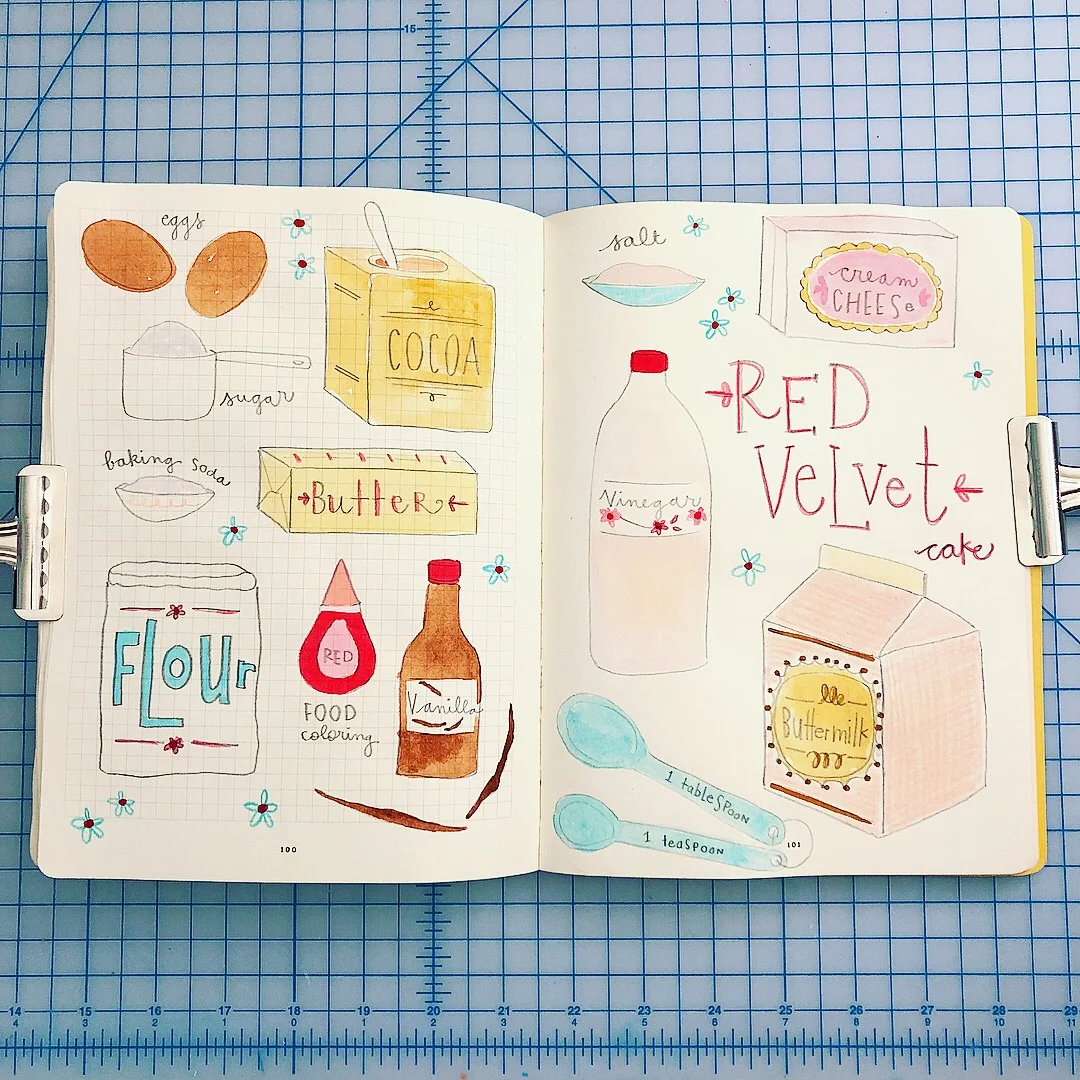 eggs
COCOA
sugar
baking soda
BuTTeR
FLOUr
RED
FOOD
coloring
Vanilla
100
salt
cream
CHEESe
Vinegar
RED
VeLveT
cake
BuTTermilk
1 tableSpooN
1 teaSpooN
101
15
14
15
16
17
18
19
20
21
22
23
24
25
26
27
28
29
4
3
2
1
0
1
2
3
4
5
6
7
8
9
10
11